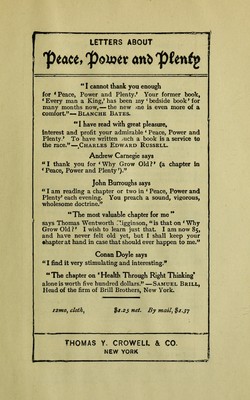 LETTERS ABOUT
Peace, Power and Plenty
"I cannot thank you enough
for 'Peace, Power and Plenty.' Your former book,
'Every man a King,' has been my 'bedside book' for
many months now,— the new one is even more of a
comfort."— BLANCHE BATES.
"I have read with great pleasure,
interest and profit your admirable 'Peace, Power and
Plenty.' To have written such a book is a service to
the race."—CHARLES EDWARD RUSSELL.
Andrew Carnegie says
"I thank you for 'Why Grow Old?' (a chapter in
'Peace, Power and Plenty')."
John Burroughs says
"I am reading a chapter or two in 'Peace, Power and
Plenty' each evening. You preach a sound, vigorous,
wholesome doctrine."
"The most valuable chapter for me"
says Thomas Wentworth Higginson, "is that on 'Why
Grow Old?' I wish to learn just that. I am now 85,
and have never felt old yet, but I shall keep your
chapter at hand in case that should ever happen to me."
Conan Doyle says
"I find it very stimulating and interesting."
"The chapter on 'Health Through Right Thinking'
alone is worth five hundred dollars." — SAMUEL BRILL,
Head of the firm of Brill Brothers, New York.
12mo, cloth, $1.25 net. By mail, $1.37
THOMAS Y. CROWELL & CO.
NEW YORK